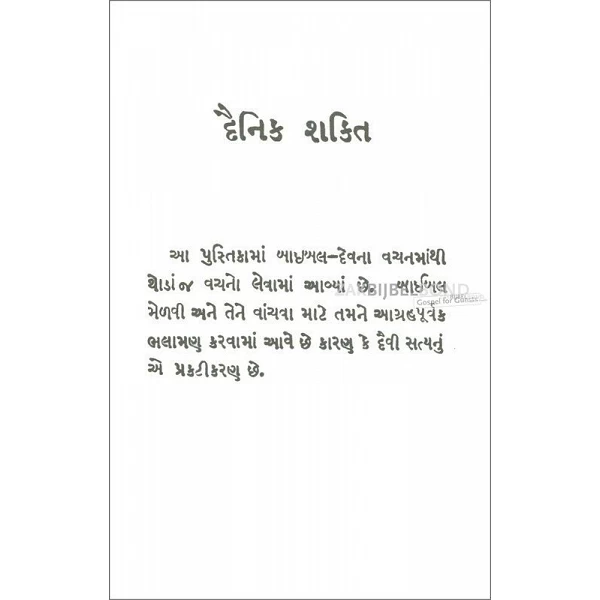 દૈનિક શક્તિ
આ પુસ્તિકામાં બાઈબલ–દેવના વચનમાંથી
થોડાંજ વચનો લેવામાં આવ્યાં છે. બાઈબલ
મેળવી અને તેને વાંચવા માટે તમને આગ્રહપૂર્વક
ભલામણ કરવામાં આવે છે કારણ કે દૈવી સત્યનું
એ પ્રકટીકરણ છે.
BIJBELBOND
Gospel for Guests